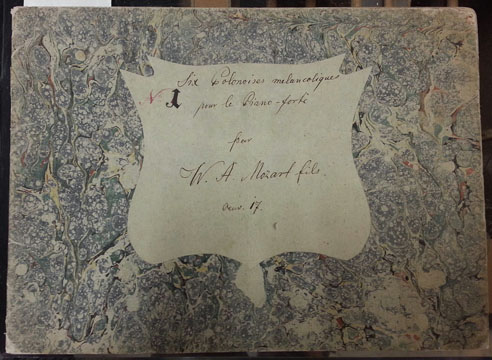 Six Polonoises melancoliques
N 1
pour le Piano-forte
par
W. A. Mozart fils.
Oeuv. 17.